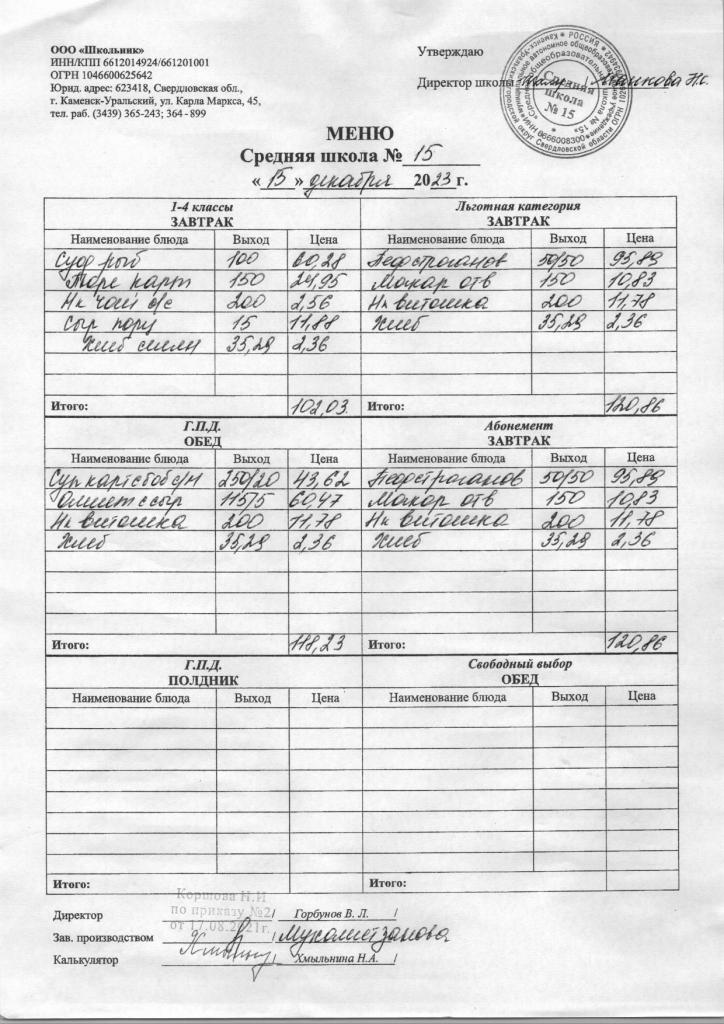 ООО «Школьник»
ИНН/КПП 6612014924/661201001
ОГРН 1046600625642
Юрид. адрес: 623418, Свердловская обл.,
г. Каменск-Уральский, ул. Карла Маркса, 45,
тел. раб. (3439) 365-243; 364 - 899
Утверждаю
Директор школы
Средняя
школа
№ 15
МЕНЮ
Средняя школа № 15
« 15 » декабря 2023 г.
1-4 классы Льготная категория
ЗАВТРАК ЗАВТРАК
Наименование блюда Выход Цена Наименование блюда Выход Цена
Суф рыб 100 60,28 Бефстроганов 50/50 95,89
Пюре карт 150 24,95 Макар отв 150 10,83
Нк чай с/с 200 2,56 Нк витошка 200 11,78
Сыр порц 15 11,88 Хлеб 35,29 2,36
Хлеб 35,29 2,36
Итого: 102,03 Итого: 120,86
Г.П.Д. Абонемент
ОБЕД ЗАВТРАК
Наименование блюда Выход Цена Наименование блюда Выход Цена
Суп карт с боб с/м 250/20 43,62 Бефстроганов 50/50 95,89
Омлет с сыр 115/5 60,47 Макар отв 150 10,83
Нк витошка 200 11,78 Нк витошка 200 11,78
Хлеб 35,29 2,36 Хлеб 35,29 2,36
Итого: 118,23 Итого: 120,86
Г.П.Д. Свободный выбор
ПОЛДНИК ОБЕД
Наименование блюда Выход Цена Наименование блюда Выход Цена
Итого: Итого:
Коршова Н.И
по приказу №2
от 17.08.2021г.
Директор / Горбунов В. Л. /
Зав. производством / Мухаметзанова
Калькулятор / Хмыльнина Н.А. /